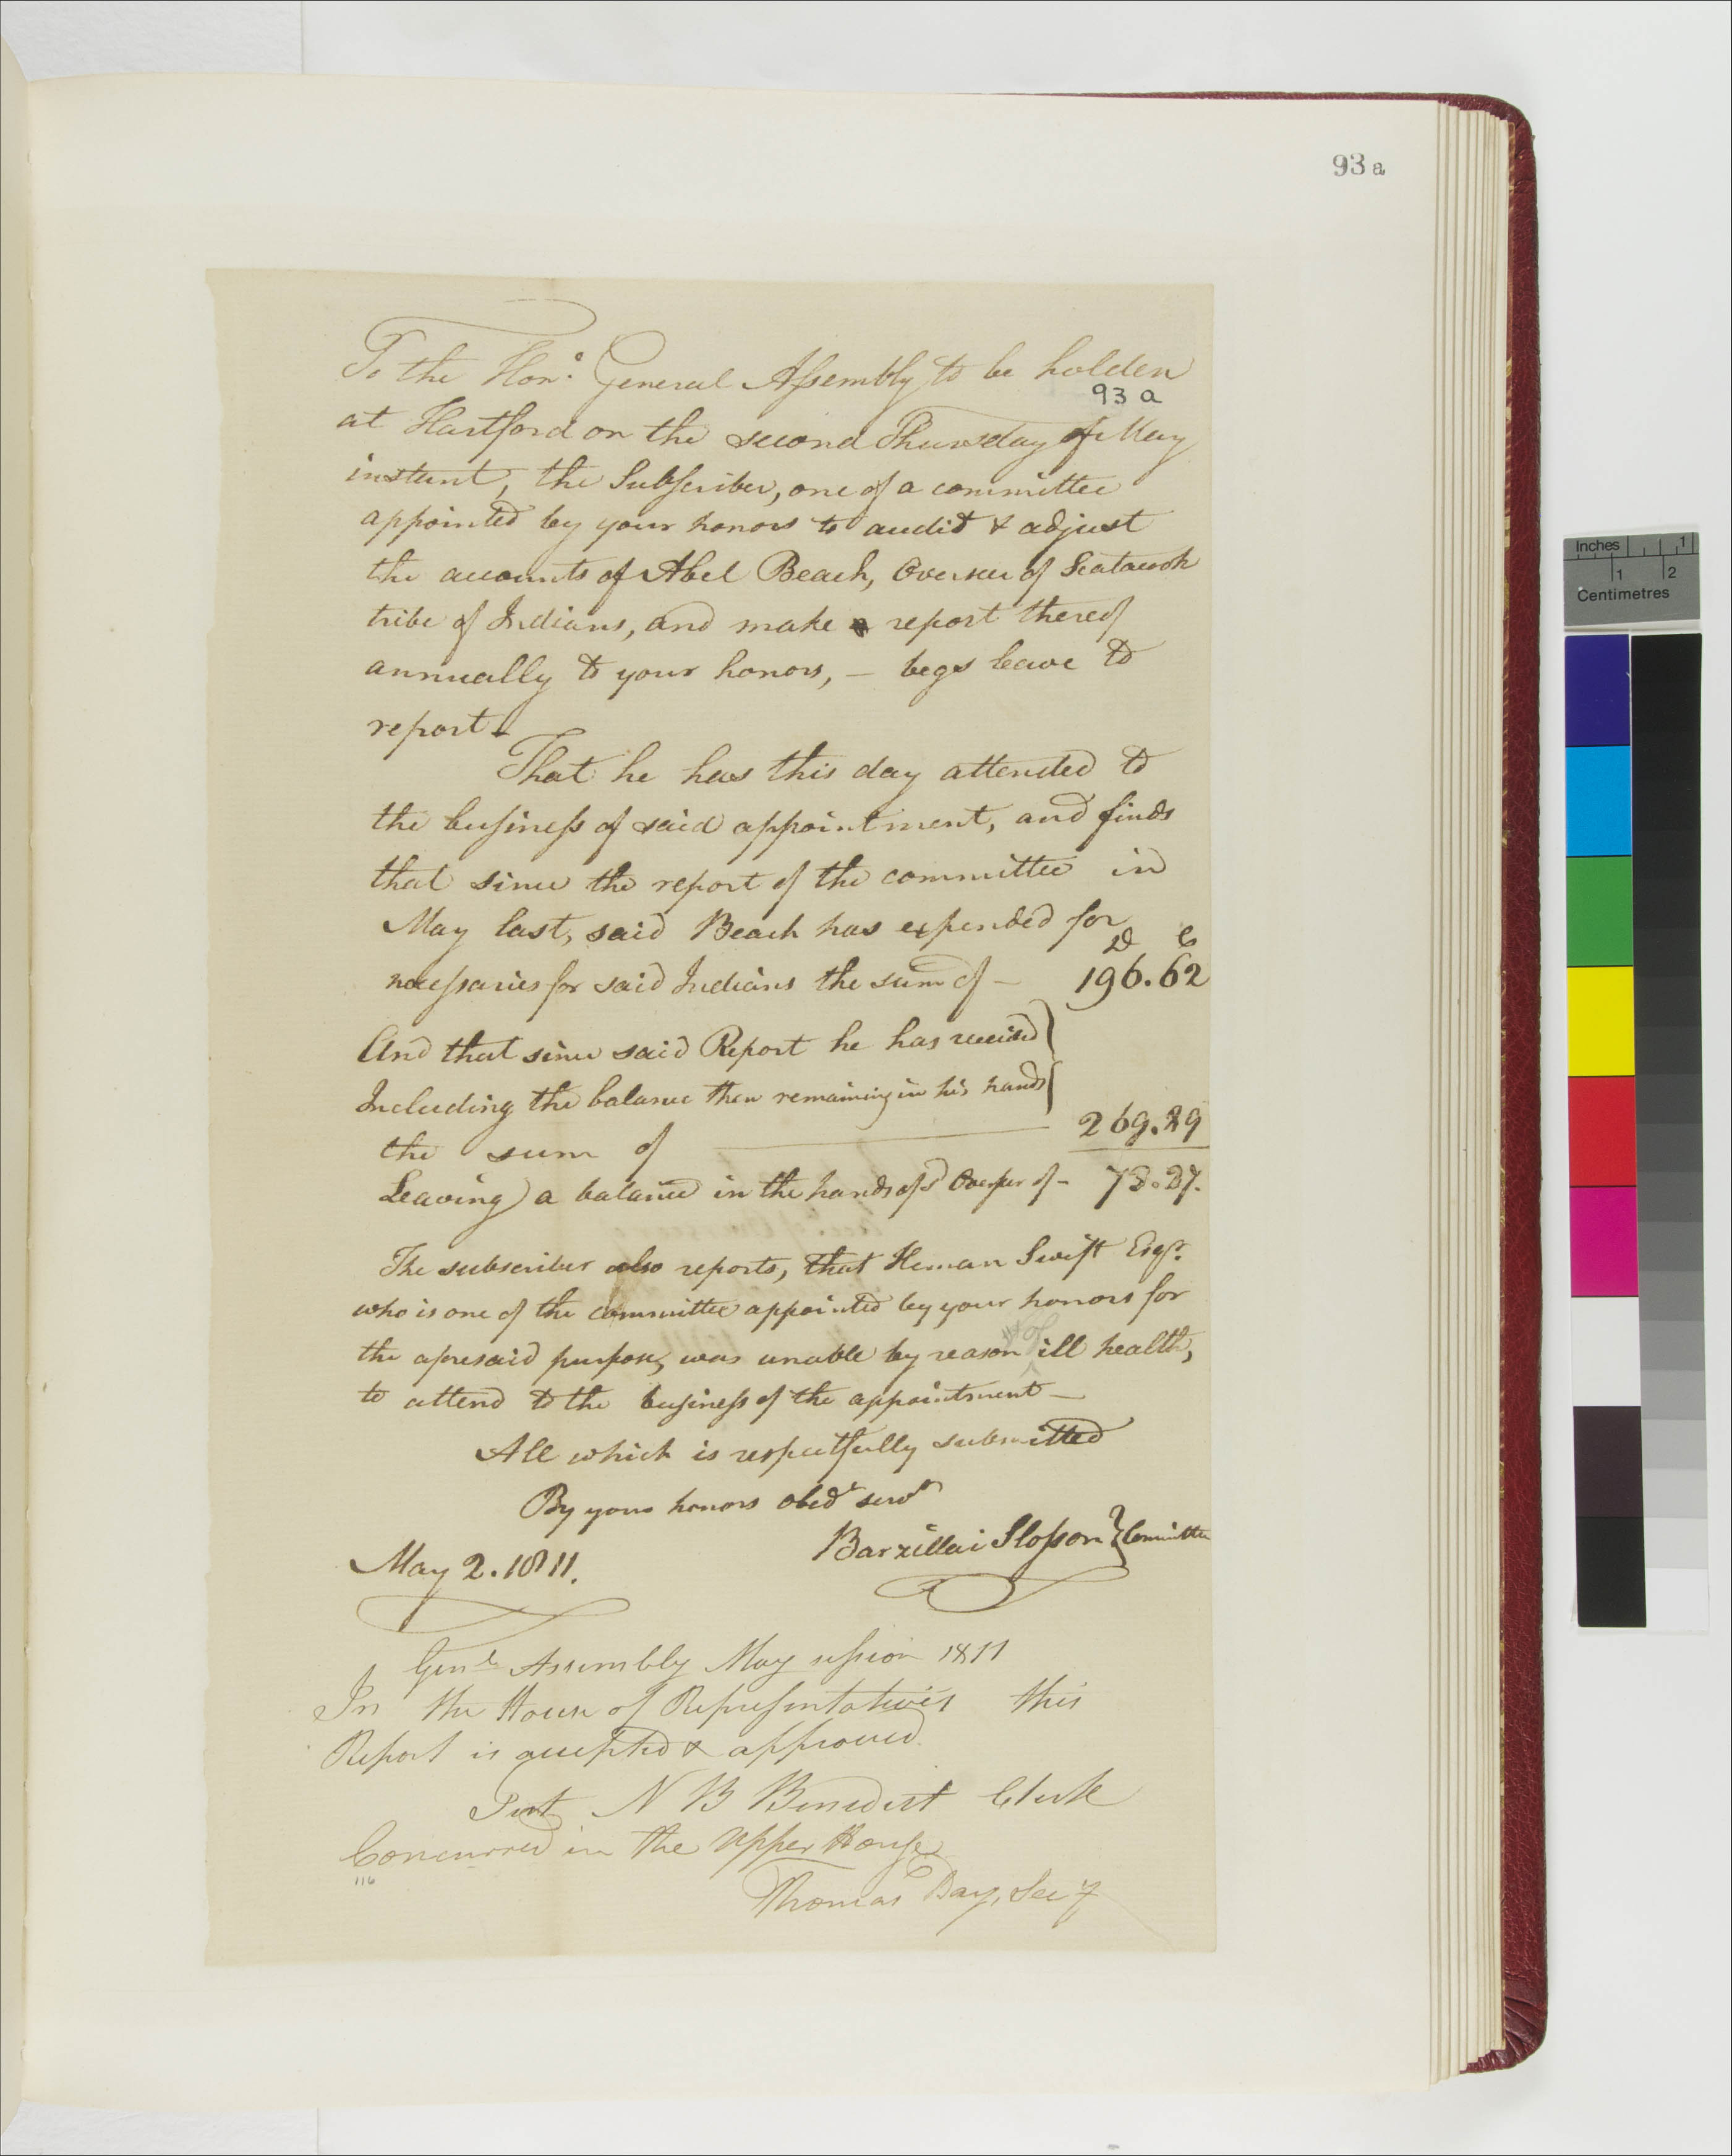 93 a
To the Hon.e General Assembly to be holden
93 a
at Hartford on the second Thursday of May
instant, the Subscriber, one of a committee
appointed by your honors to audit & adjust
the accounts of Abel Beach, Overseer of Scatacook
tribe of Indians, and make report thereof
annually to your honors, — begs leave to
report.
That he has this day attended to
the business of said appointment, and finds
that since the report of the committee in
May last, said Beach has expended for
D C
necessaries for said Indians the sum of — 196.62
And that since said Report he has received
Including the balance then remaining in his hands
the sum of 269.89
Leaving a balance in the hands of sd Overseer of — 73.27.
The subscriber also reports, that Heman Swift Esqr.
who is one of the committee appointed by your honors for
the aforesaid purpose, was unable by reason of ill health,
to attend to the business of the appointment —
All which is respectfully submitted
By your honors obedt servt
Barzillai Slosson } Committee
May 2. 1811.
Genl Assembly May session 1811
In the House of Representatives this
Report is accepted & approved
Test N B Benedict Clerk
Concurred in the Upper House
116
Thomas Day, Secy